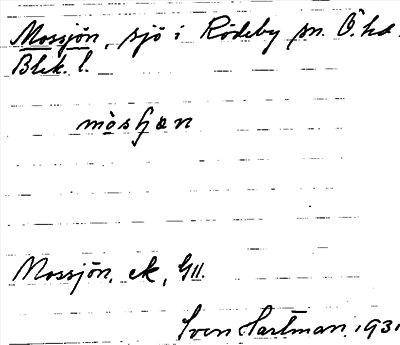 Mossjön, sjö i Rödeby sn. Ö. hd.
Blek. l.
Mossjön, ek, G11.
Sven Hartman. 1931